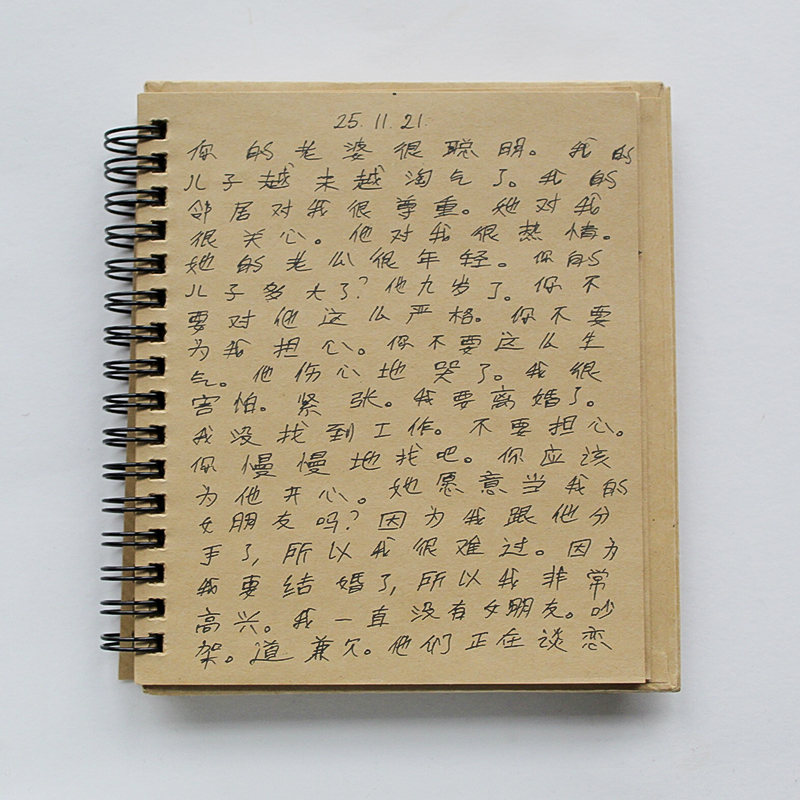 25.11.21.
你的老婆很聪明。我的
儿子越来越淘气了。我的
邻居对我很尊重。她对我
很关心。他对我很热情。
她的老公很年轻。你的
儿子多大了？他九岁了。你不
要对他这么严格。你不要
为我担心。你不要这么生
气。他伤心地哭了。我很
害怕。紧张。我要离婚了。
我没找到工作。不要担心。
你慢慢地找吧。你应该
为他开心。她愿意当我的
女朋友吗？因为我跟他分
手了，所以我很难过。因为
我要结婚了，所以我非常
高兴。我一直没有女朋友。吵
架。道兼欠。他们正在谈恋